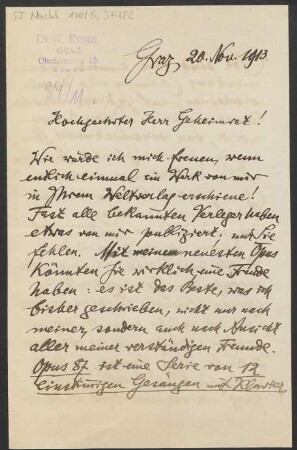 55 Nachl 100/B,
Dr. W. Kienzl
GRAZ
Graz, 20. Nov. 1913
Hochgeehrter Herr Geheimrat!
Wie würde ich mich freuen, wenn
endlich einmal ein Werk von mir
in Ihrem Weltverlag erschiene!
Fast alle bekannten Verleger haben
etwas von mir publiziert: nur Sie
fehlen. Mit meinem neuesten Opus
könnten Sie wirklich eine Freude
haben: es ist das Beste, was ich
bisher geschrieben, nicht nur nach
meiner, sondern auch nach Ansicht
aller meiner verständigen Freunde.
Opus 87 ist eine Serie von 12
einstimmigen Gesängen mit Klavier